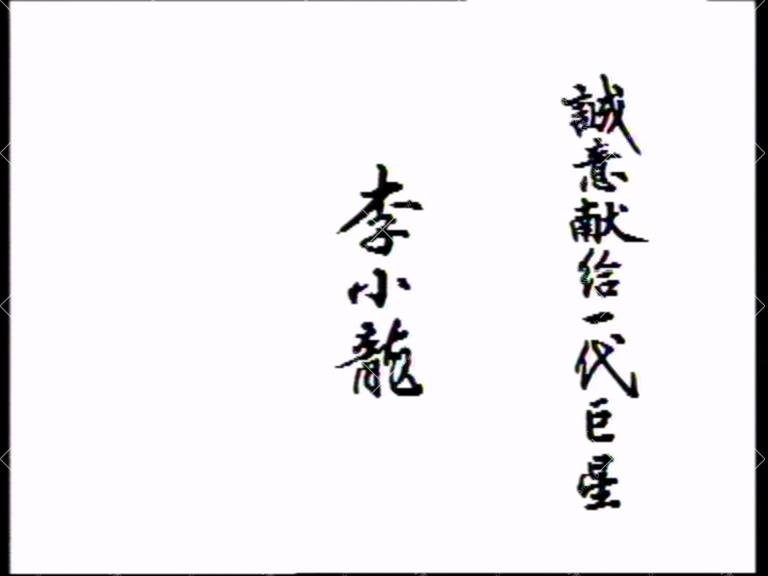 誠意献給一代巨星
李小龍